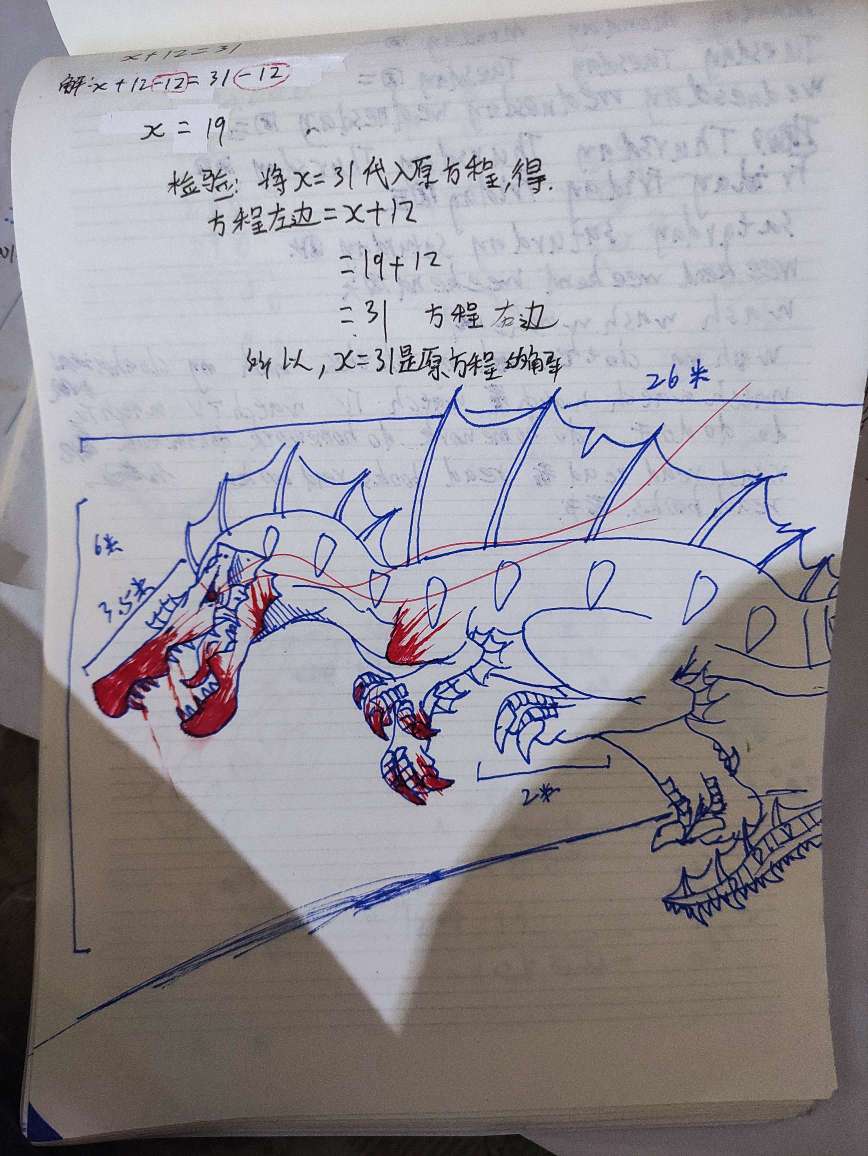 x+12=31
解:x+12-12=31-12
x=19
检验:将x=31代入原方程,得.
方程左边=x+12
=19+12
=31 方程右边
所以,x=31是原方程的解
26米
6米
3.5米
2米